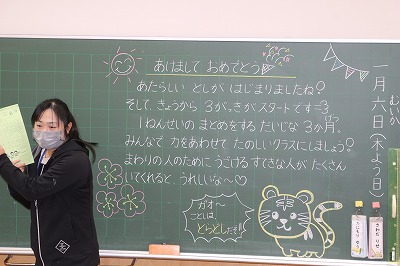 あけまして おめでとう
あたらしい としが はじまりましたね?
そして、きょうから 3がっきが スタートです=3
1ねんせいの まとめをする だいじな 3か月。
みんなで 力をあわせて たのしいクラスにしましょう?
まわりの人のために うごける すてきな人が たくさん
いてくれると、うれしいな〜♡
ガオ〜
ことしは、
とらどしだぞ!!
一月六日(木よう日)
むいか